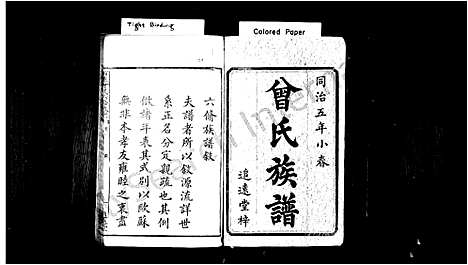 Tight Binding
Colored Paper
同治五年小春
曾氏族譜
追遠堂梓
六修族譜敘
夫譜者所以敘源流詳世
系正名分定親疏也其例
倣諸斗表其式別以歐蘇
無非本孝友雍睦之衷盡